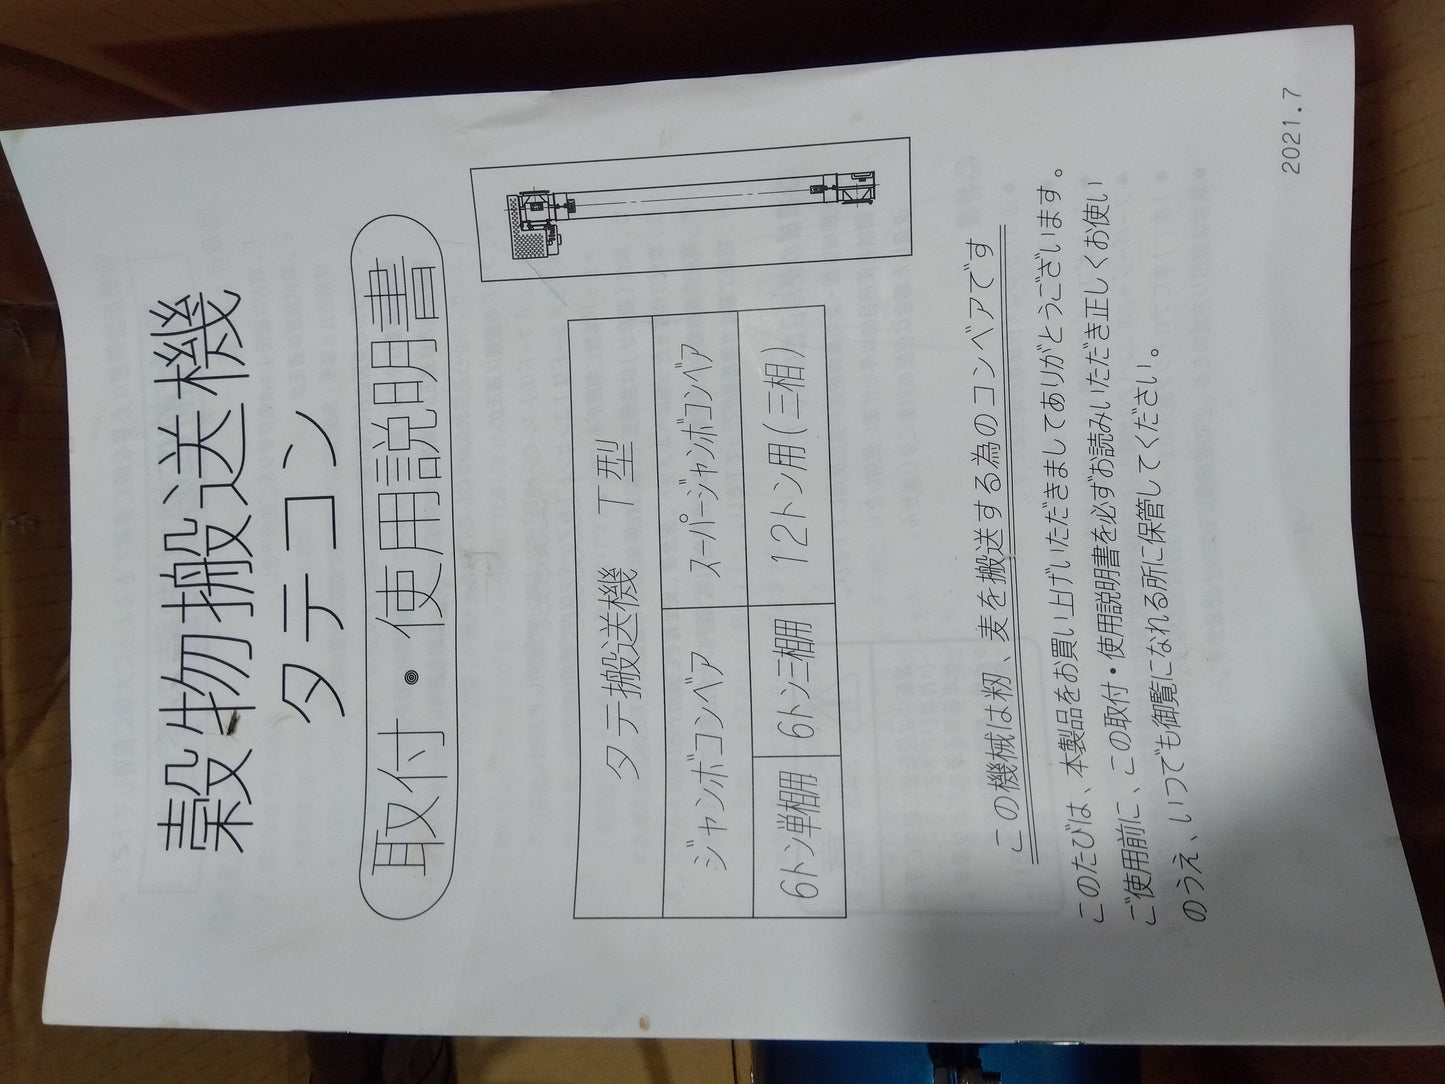 穀物搬送機
タテコン
取付・使用説明書
タテ搬送機 T型
ジャンボコンベア スーパージャンボコンベア
6トン単相用 6トン三相用 12トン用(三相)
この機械は籾、麦を搬送する為のコンベアです
このたびは、本製品をお買い上げいただきましてありがとうございます。
ご使用前に、この取付・使用説明書を必ずお読みいただき正しくお使い
のうえ、いつでも御覧になれる所に保管してください。
2021.7